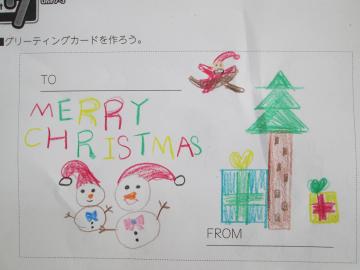 ■グリーティングカードを作ろう。
TO
MERRY
CHRISTMAS
FROM